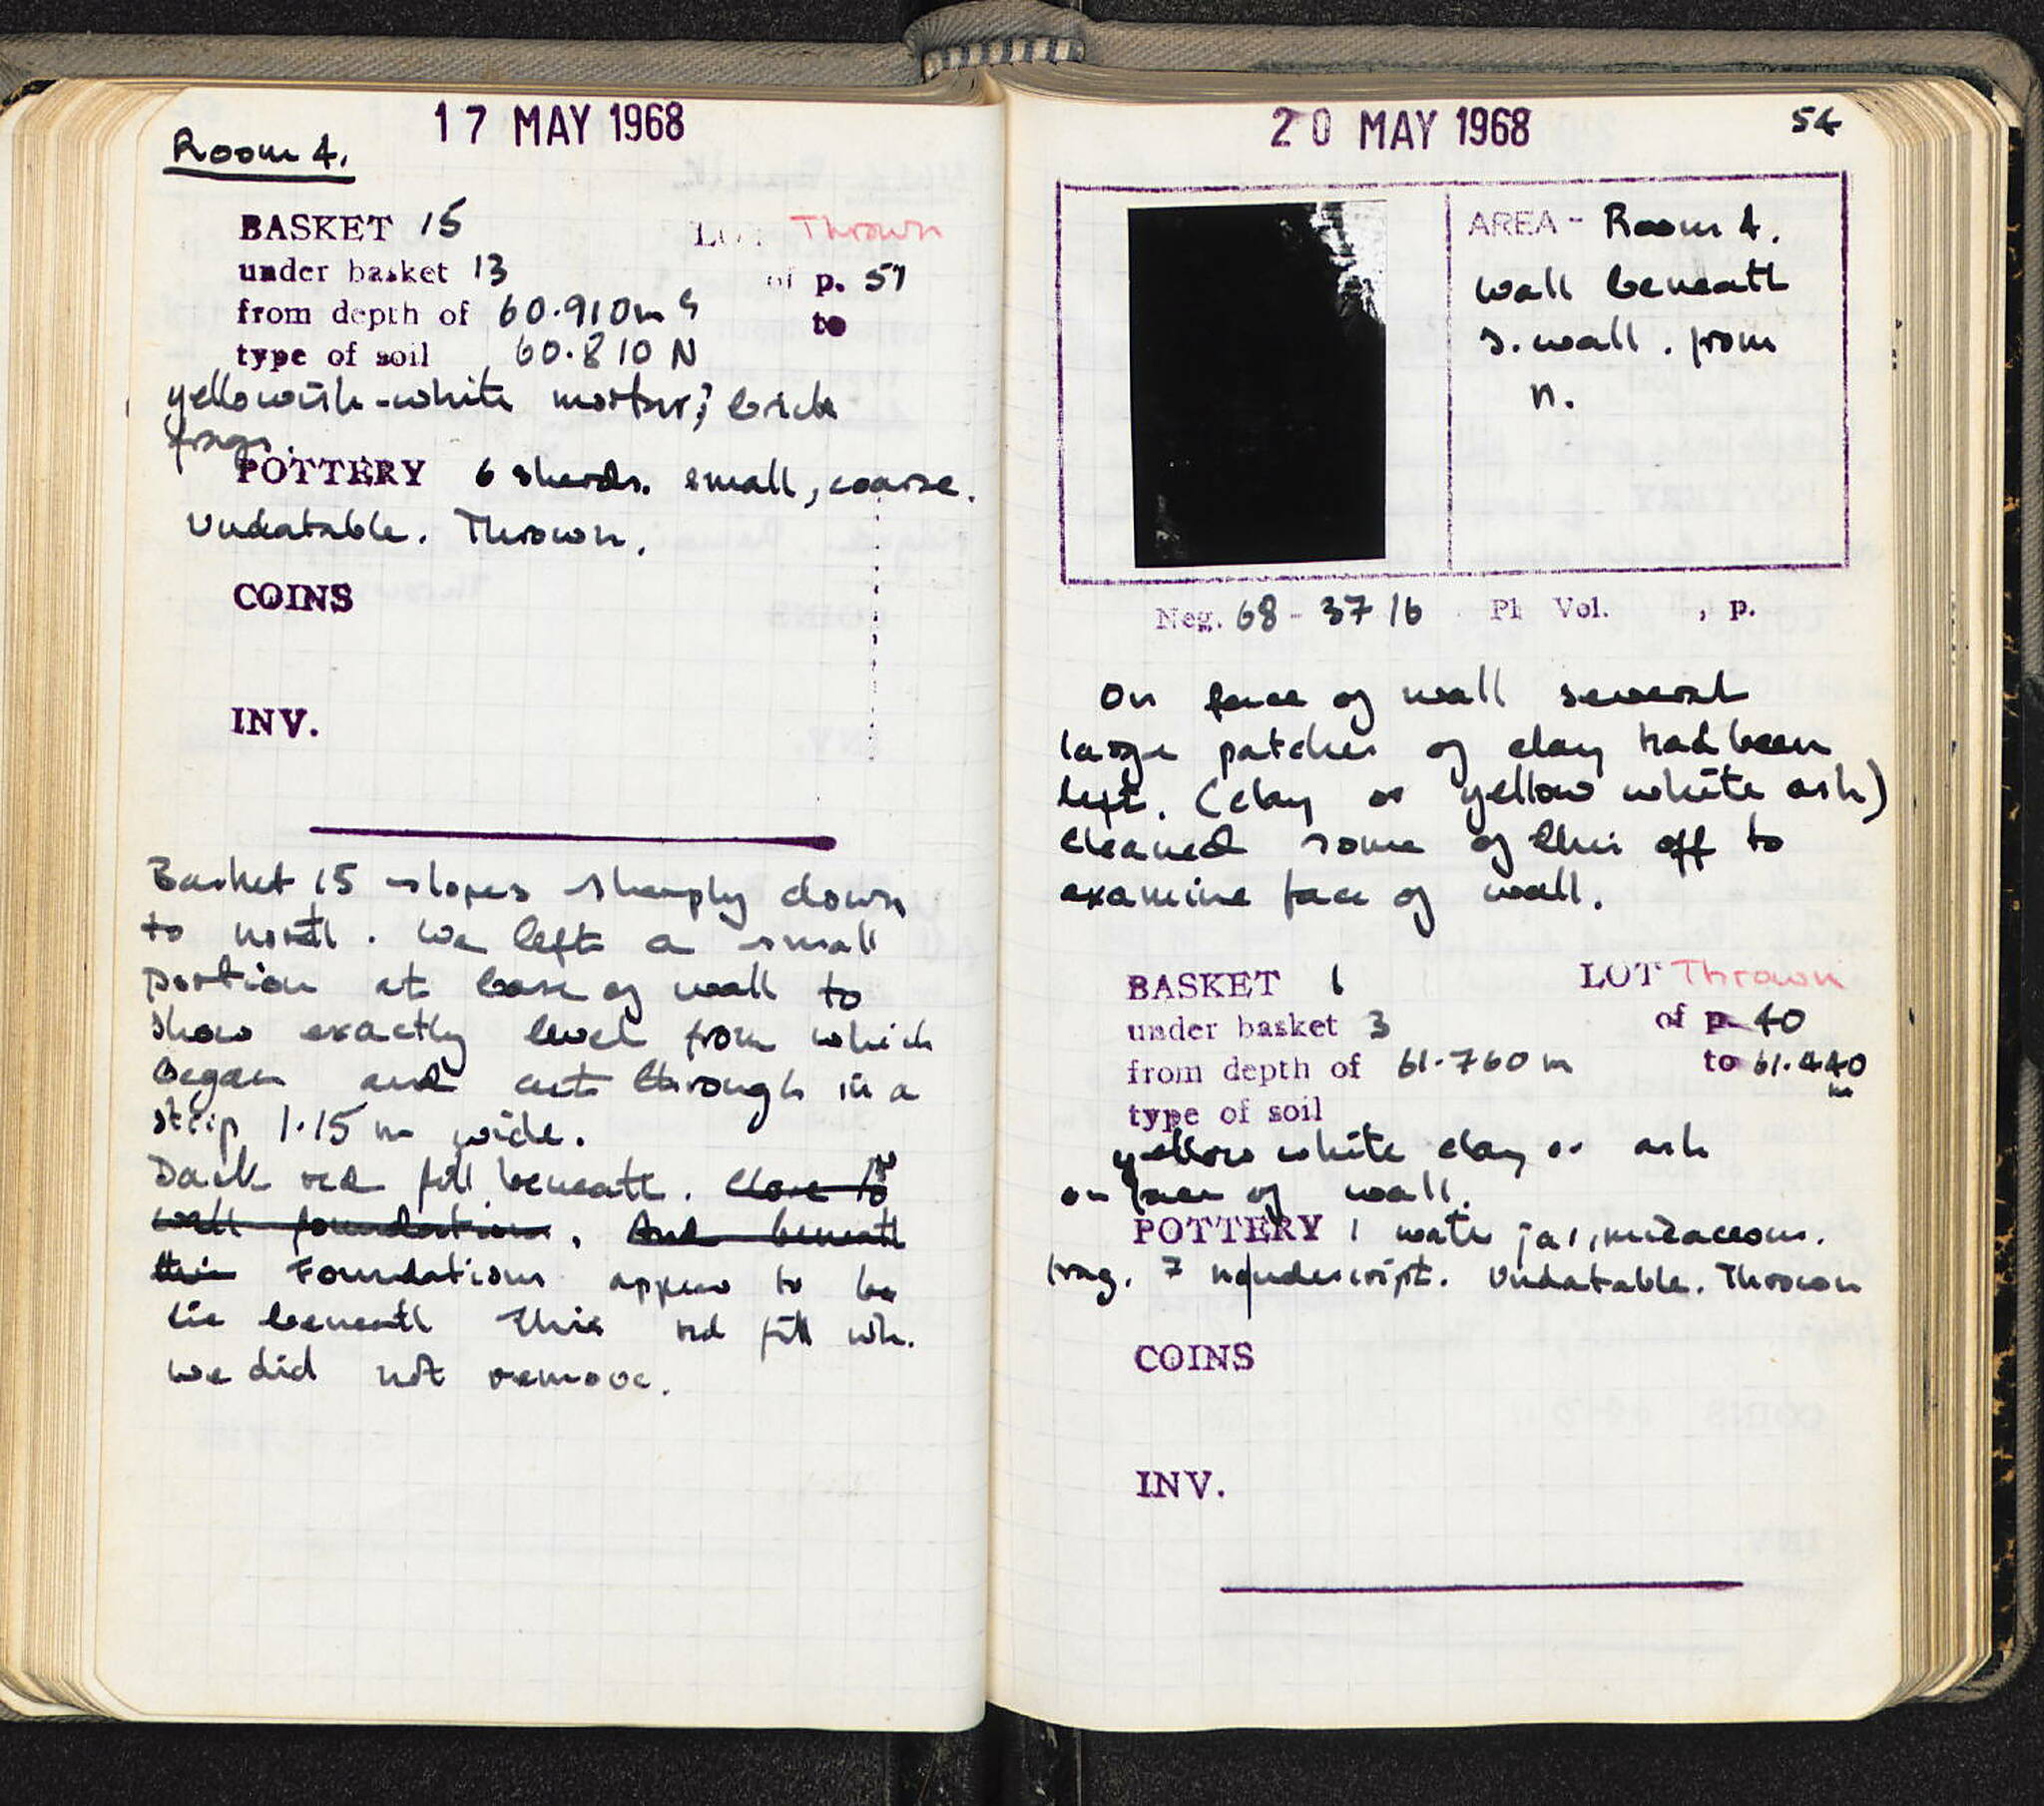 17 MAY 1968
Room 4.
BASKET 15 LOT Thrown
under basket 13 of p. 51
from depth of 60.910m S to
type of soil 60.810 N
yellowish-white mortar; brick
frags.
POTTERY 6 sherds. small, coarse.
Undatable. Thrown.
COINS
INV.
Basket 15 slopes sharply down
to north. We left a small
portion at base of wall to
show exactly level from which
began and cut through in a
strip 1.15 m wide.
Dark red fill beneath. Close to
wall foundations. And beneath
this Foundations appear to be
lie beneath this red fill wh.
we did not remove.
20 MAY 1968 54
AREA - Room 4.
wall beneath
S. wall. from
N.
Neg. 68-37 16 Pl Vol. , p.
On face of wall several
large patches of clay had been
left. (clay or yellow white ash)
cleaned some of this off to
examine face of wall.
BASKET 1 LOT Thrown
under basket 3 of p. 40
from depth of 61.760 m to 61.440
m
type of soil
yellow white clay or ash
on face of wall.
POTTERY 1 water jar, micaceous.
frag. 7 nondescript. Undatable. Thrown
COINS
INV.